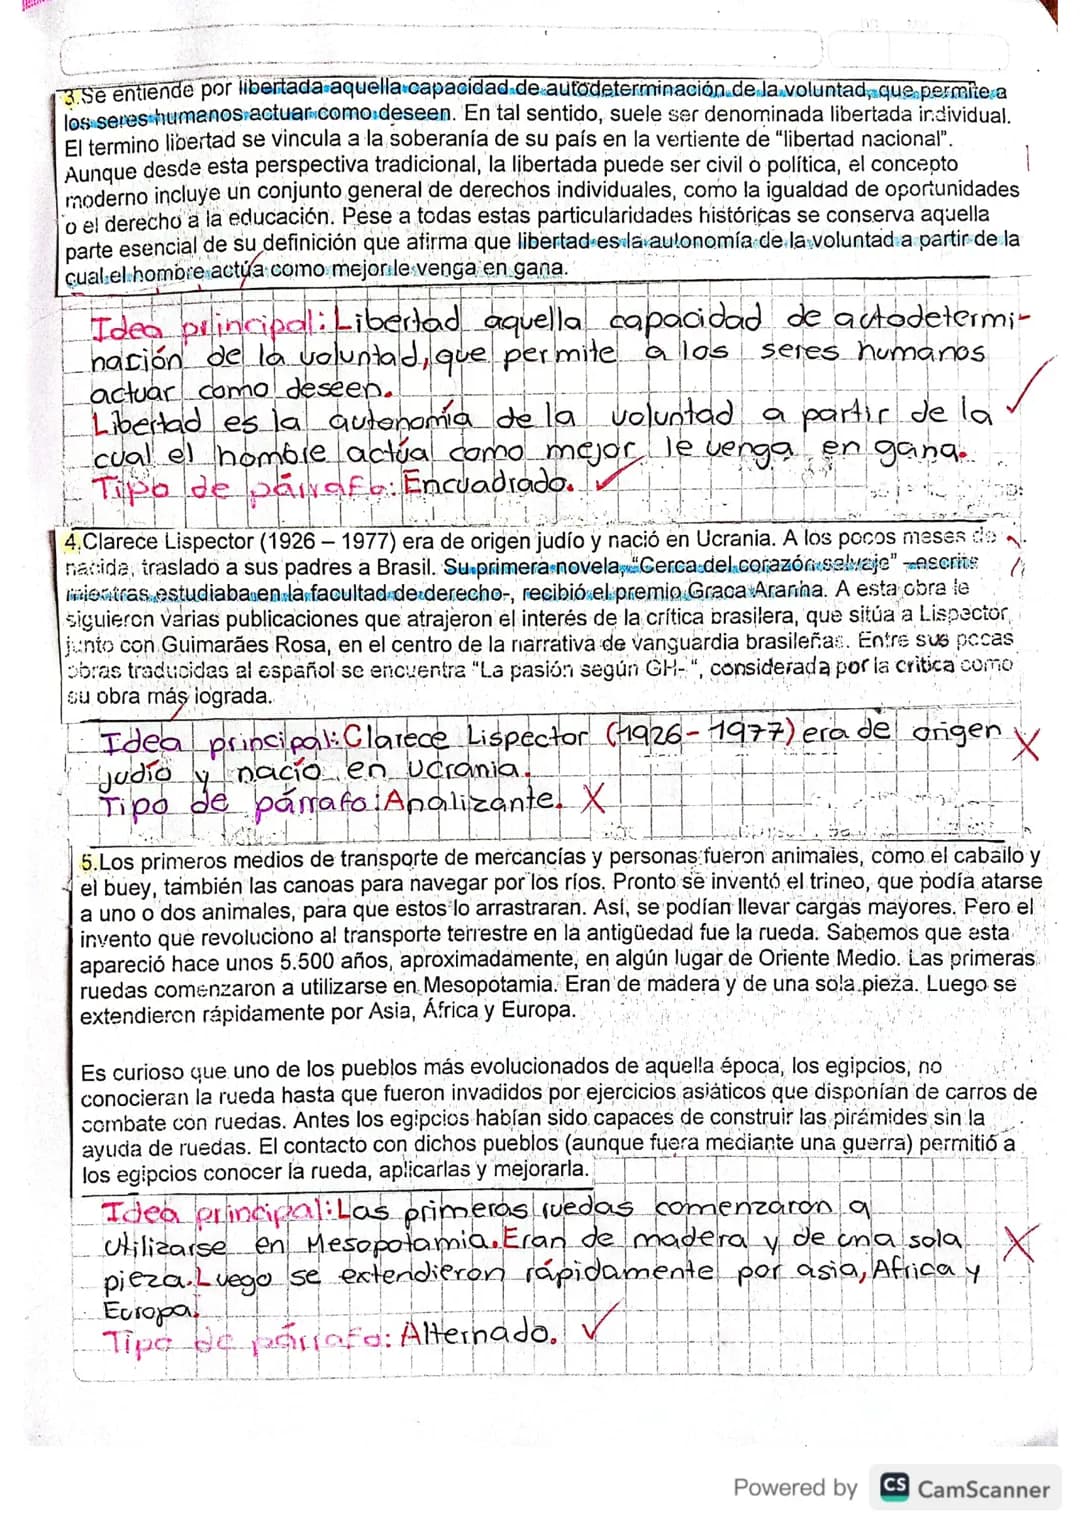 3.Se entiende por libertada aquella capacidad de autodeterminación de la voluntad, que permite a
los seres humanos actuar como deseen. En tal sentido, suele ser denominada libertada individual.
El termino libertad se vincula a la soberanía de su país en la vertiente de "libertad nacional".
Aunque desde esta perspectiva tradicional, la libertada puede ser civil o política, el concepto
moderno incluye un conjunto general de derechos individuales, como la igualdad de oportunidades
o el derecho a la educación. Pese a todas estas particularidades históricas se conserva aquella
parte esencial de su definición que afirma que libertad es la autonomía de la voluntad a partir de la
cual el hombre actúa como mejor le venga en gana.
Idea principal: Libertad aquella capacidad de autodetermi-
nación de la voluntad, que permite a los seres humanos
actuar como deseen.
Libertad es la autonomía de la voluntad a partir de la
cual el hombre actúa como mejor le venga en gana.
Tipo de párrafo: Encuadrado.
4.Clarece Lispector (1926 – 1977) era de origen judío y nació en Ucrania. A los pocos meses de
nacida, traslado a sus padres a Brasil. Su primera novela, "Cerca del corazón salvaje" –escrita
mientras estudiaba en la facultad de derecho-, recibió el premio Graca Aranha. A esta obra le
siguieron varias publicaciones que atrajeron el interés de la crítica brasilera, que sitúa a Lispector,
junto con Guimarães Rosa, en el centro de la narrativa de vanguardia brasileñas. Entre sus pocas
obras traducidas al español se encuentra "La pasión según GH-", considerada por la critica como
su obra más lograda.
Idea principal: Clarece Lispector (1926-1977) era de origen
judío y nacio en Ucrania.
Tipo de párrafo: Analizante.
5.Los primeros medios de transporte de mercancías y personas fueron animales, como el caballo y
el buey, también las canoas para navegar por los ríos. Pronto se inventó el trineo, que podía atarse
a uno o dos animales, para que estos lo arrastraran. Así, se podían llevar cargas mayores. Pero el
invento que revoluciono al transporte terrestre en la antigüedad fue la rueda. Sabemos que esta
apareció hace unos 5.500 años, aproximadamente, en algún lugar de Oriente Medio. Las primeras
ruedas comenzaron a utilizarse en Mesopotamia. Eran de madera y de una sola pieza. Luego se
extendieron rápidamente por Asia, África y Europa.
Es curioso que uno de los pueblos más evolucionados de aquella época, los egipcios, no
conocieran la rueda hasta que fueron invadidos por ejercicios asiáticos que disponían de carros de
combate con ruedas. Antes los egipcios habían sido capaces de construir las pirámides sin la
ayuda de ruedas. El contacto con dichos pueblos (aunque fuera mediante una guerra) permitió a
los egipcios conocer la rueda, aplicarlas y mejorarla.
Idea principal: Las primeras ruedas comenzaron a
utilizarse en Mesopotamia. Eran de madera y de una sola
pieza. Luego se extendieron rápidamente por asia, Africa y
Europa.
Tipo de párrafo: Alternado.
Powered by CS CamScanner